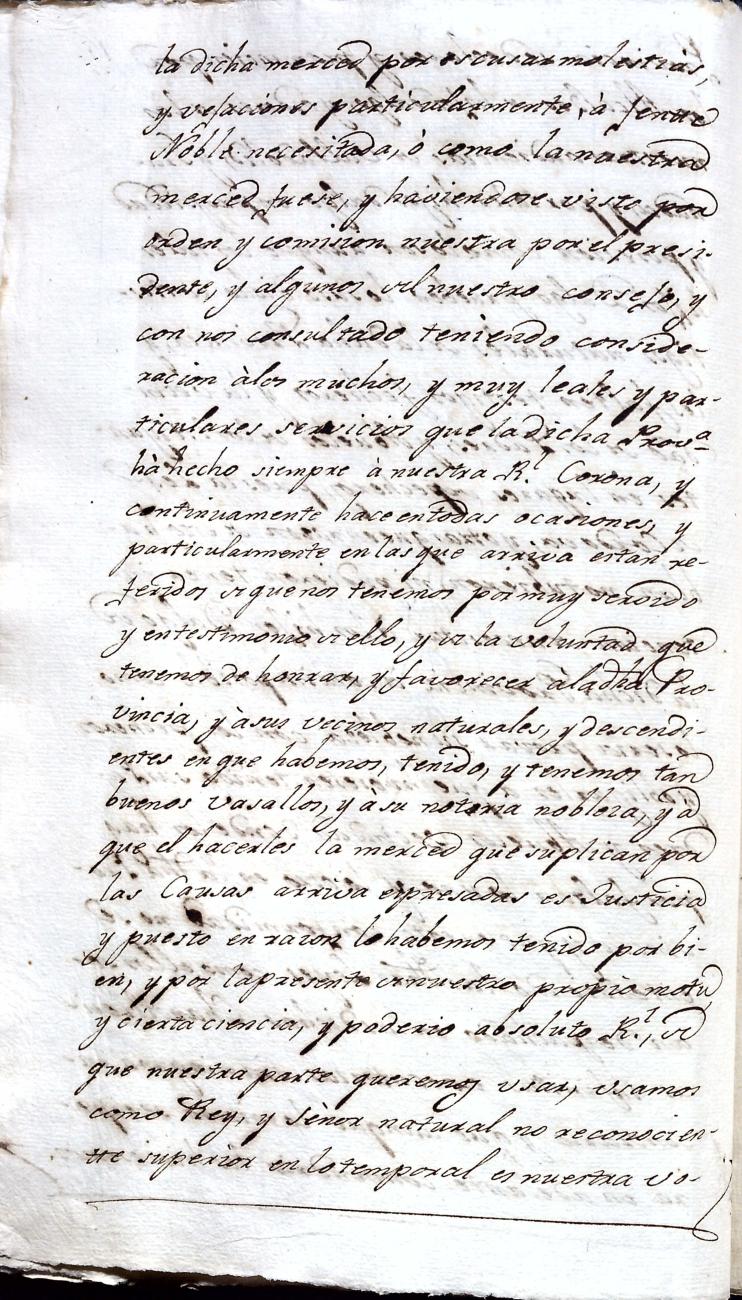 la dicha merced por escusar molestias,
y vejaciones particularmente, à Jente
Noble necesitada, ò como la nuestra
merced fuese, y haviendose visto por
orden y comision nuestra por el presi-
dente, y algunos del nuestro consejo, y
con nos consultado teniendo conside-
racion àlos muchos, y muy leales y par-
ticulares servicios que la dicha Prov.ª
hà hecho siempre à nuestra R.l Corona, y
continuamente hace entodas ocasiones, y
particularmente en las que arriva estan re-
feridos de que nos tenemos por muy servido
y entestimonio de ello, y de la voluntad que
tenemos de honrrar, y favorecer àla dhã Pro-
vincia, y àsus vecinos naturales, y descendi-
entes en que habemos, tenido, y tenemos tan
buenos vasallos, y àsu notoria nobleza, y à
que el hacerles la merced que suplican por
las Causas arriva expresadas es Justicia
y puesto en razon lo habemos tenido por bi-
en, y por la presente de nuestro propio motu,
y cierta ciencia, y poderio absoluto R.l, de
que nuestra parte queremos usar, usamos
como Rey, y Señor natural no reconocien-
tte superior en lo temporal es nuestra vo-